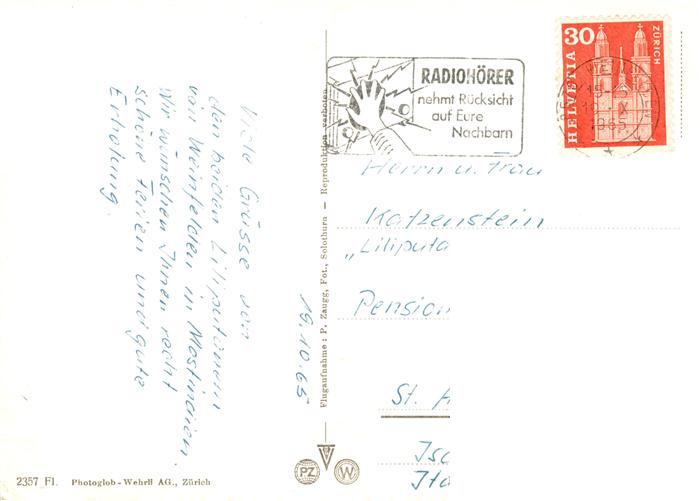 Viele Grüsse von
den beiden Liliputanern
von Weinfelden in Mostindien.
Wir wünschen Ihnen recht
schöne Ferien und gute
Erholung.
19.10.65
Flugaufnahme: P. Zaugg, Fot., Solothurn — Reproduktion verboten
RADIOHÖRER
nehmt Rücksicht
auf Eure
Nachbarn
30
HELVETIA
ZÜRICH
1965
Herrn u. Frau
Katzenstein
„Liliputa
Pension
St.
Isc
Ita
PZ
W
2357 Fl. Photoglob-Wehrli AG., Zürich